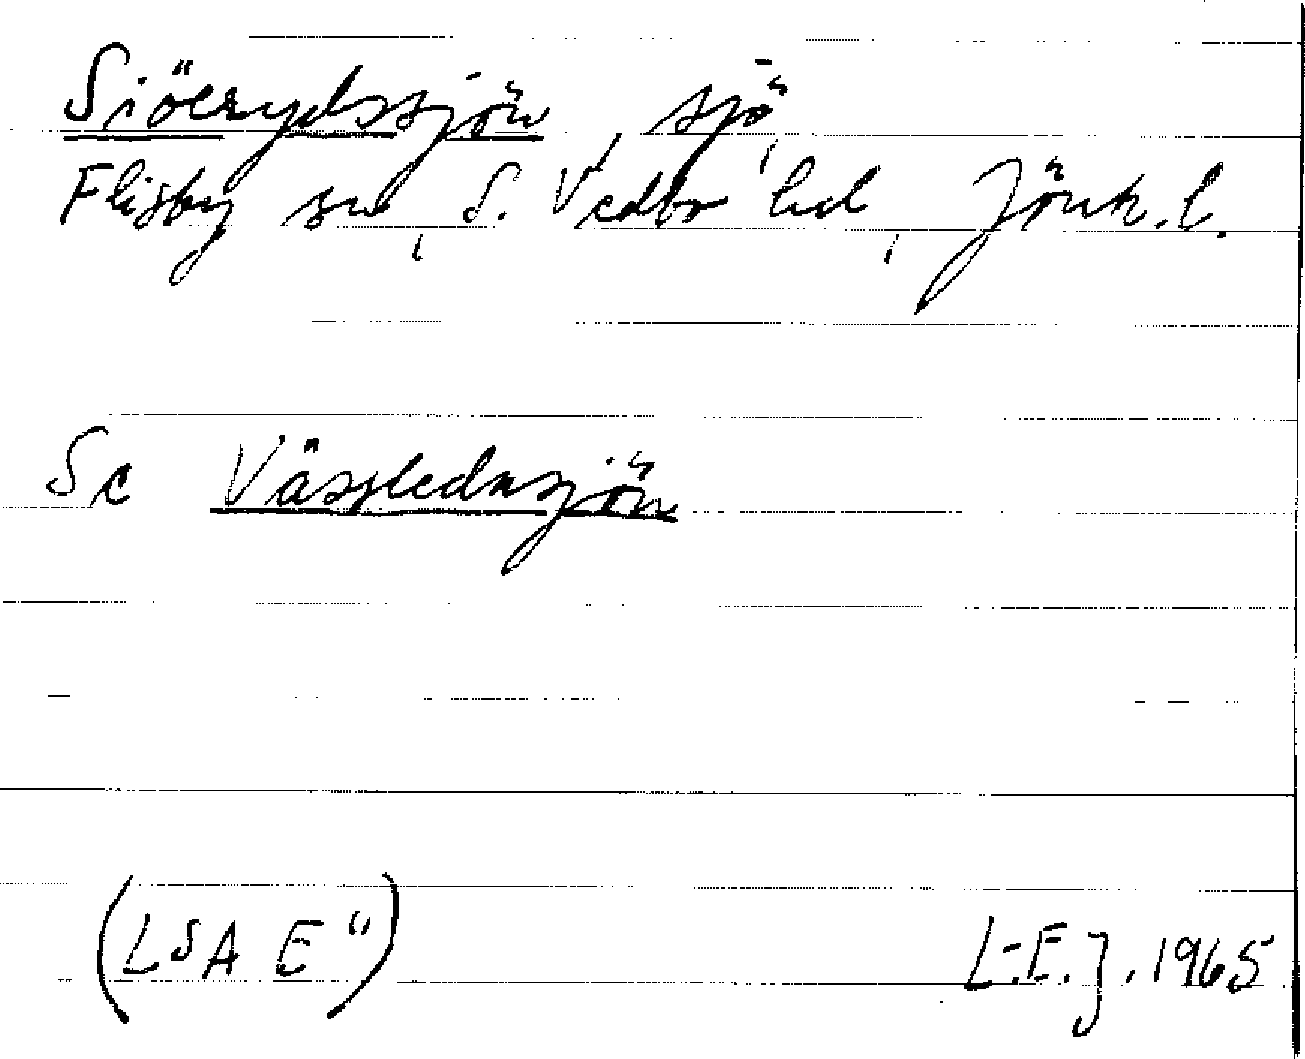 Siöerydssjön, sjö,
Flisby sn, S. Vedbo hd, Jönk. l.
Se Vässlednsjön
(LSA E") L-E.J. 1965